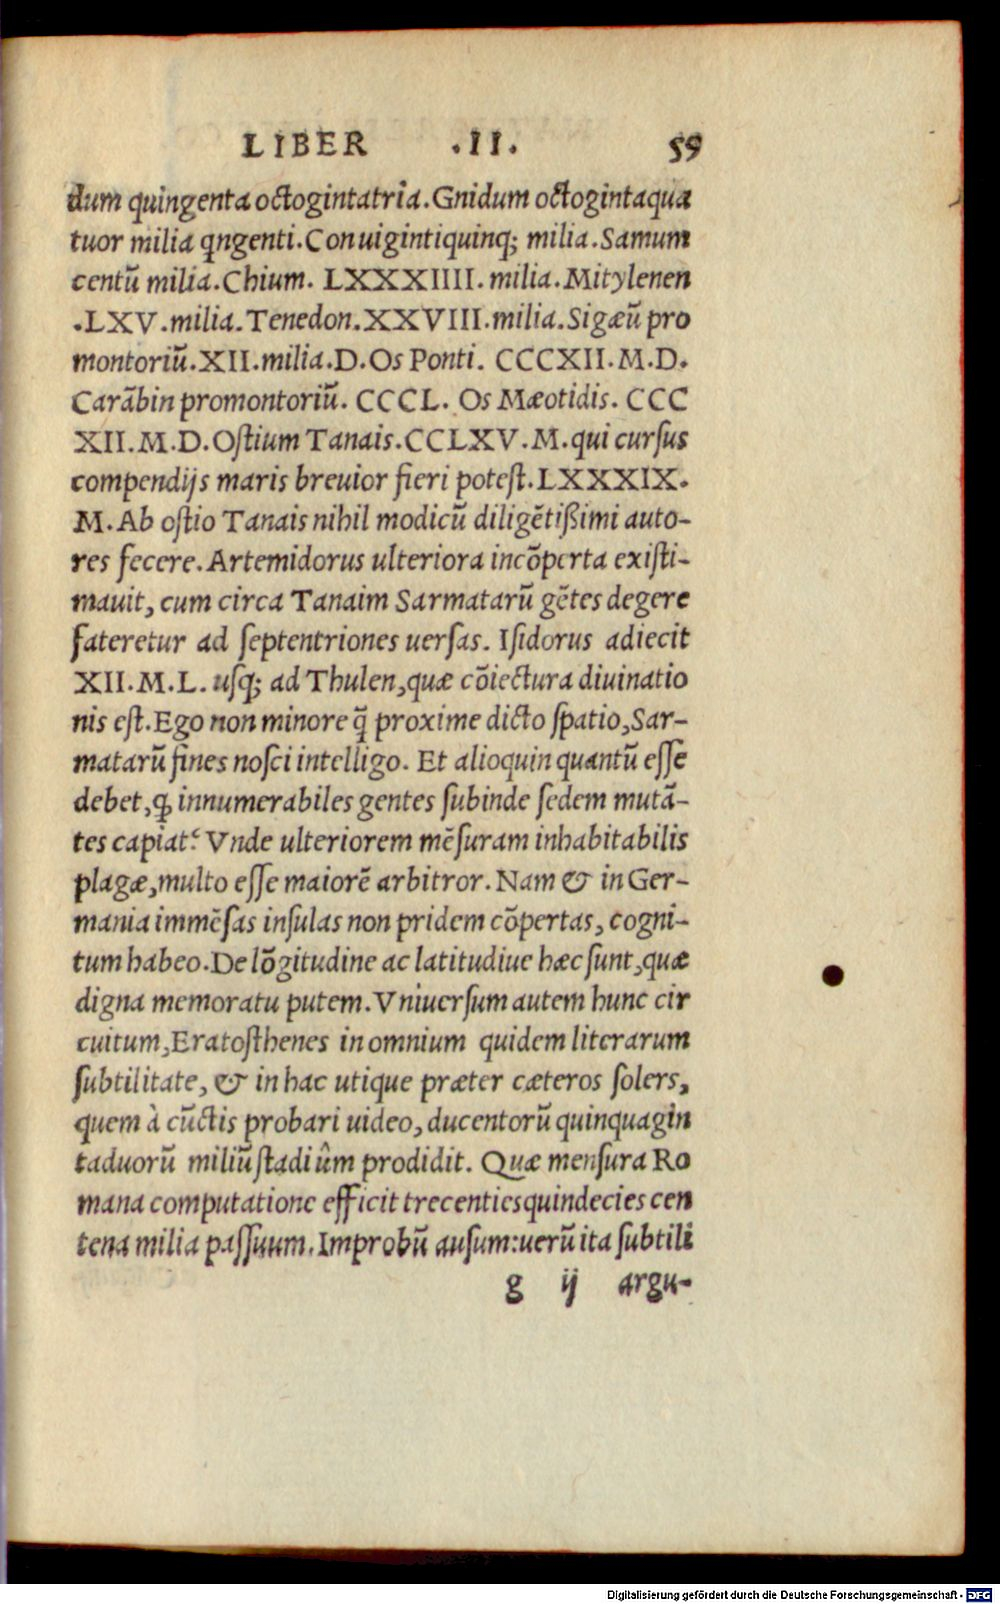 LIBER .II. 59
dum quingenta octogintatria. Gnidum octogintaqua
tuor milia qngenti. Con uigintiquinq; milia. Samum
centũ milia. Chium. LXXXIIII. milia. Mitylenen
.LXV. milia. Tenedon. XXVIII. milia. Sigæũ pro
montoriũ. XII. milia. D. Os Ponti. CCCXII. M. D.
Carãbin promontoriũ. CCCL. Os Mæotidis. CCC
XII. M. D. Oſtium Tanais. CCLXV. M. qui curſus
compendijs maris breuior fieri poteſt. LXXXIX.
M. Ab oſtio Tanais nihil modicũ diligẽtißimi auto-
res fecere. Artemidorus ulteriora incõperta exiſti-
mauit, cum circa Tanaim Sarmatarũ gẽtes degere
fateretur ad ſeptentriones uerſas. Iſidorus adiecit
XII. M. L. uſq; ad Thulen, quæ cõiectura diuinatio
nis eſt. Ego non minore q̃ proxime dicto ſpatio, Sar-
matarũ fines noſci intelligo. Et alioquin quantũ eſſe
debet, ꝙ innumerabiles gentes ſubinde ſedem mutã-
tes capiat? Vnde ulteriorem mẽſuram inhabitabilis
plagæ, multo eſſe maiorẽ arbitror. Nam & in Ger-
mania immẽſas inſulas non pridem cõpertas, cogni-
tum habeo. De lõgitudine ac latitudiue hæc ſunt, quæ
digna memoratu putem. Vniuerſum autem hunc cir
cuitum, Eratoſthenes in omnium quidem literarum
ſubtilitate, & in hac utique præter cæteros ſolers,
quem à cũctis probari uideo, ducentorũ quinquagin
taduorũ miliũ ſtadiûm prodidit. Quæ menſura Ro
mana computatione efficit trecentiesquindecies cen
tena milia paſſuum. Improbũ auſum: uerũ ita ſubtili
g ij argu-
Digitalisierung gefördert durch die Deutsche Forschungsgemeinschaft - DFG